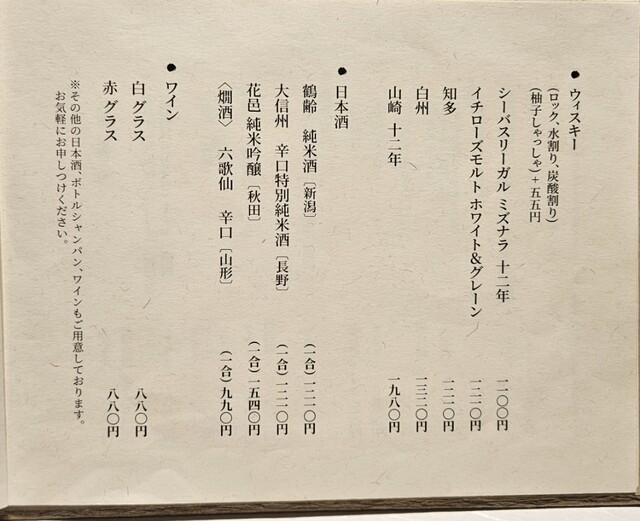 ●ウィスキー
(ロック、水割り、炭酸割り)
(柚子しゃっしゃ)+五五円
シーバスリーガル ミズナラ 十二年 一一〇〇円
イチローズモルト ホワイト&グレーン 一二一〇円
知多 一二一〇円
白州 一三二〇円
山崎 十二年 一九八〇円
●日本酒
鶴齢 純米酒〔新潟〕 (一合)一二一〇円
大信州 辛口特別純米酒〔長野〕 (一合)一二一〇円
花邑 純米吟醸〔秋田〕 (一合)一五四〇円
〈燗酒〉 六歌仙 辛口〔山形〕 (一合)九九〇円
●ワイン
白 グラス 八八〇円
赤 グラス 八八〇円
※その他の日本酒、ボトルシャンパン、ワインもご用意しております。
お気軽にお申しつけください。